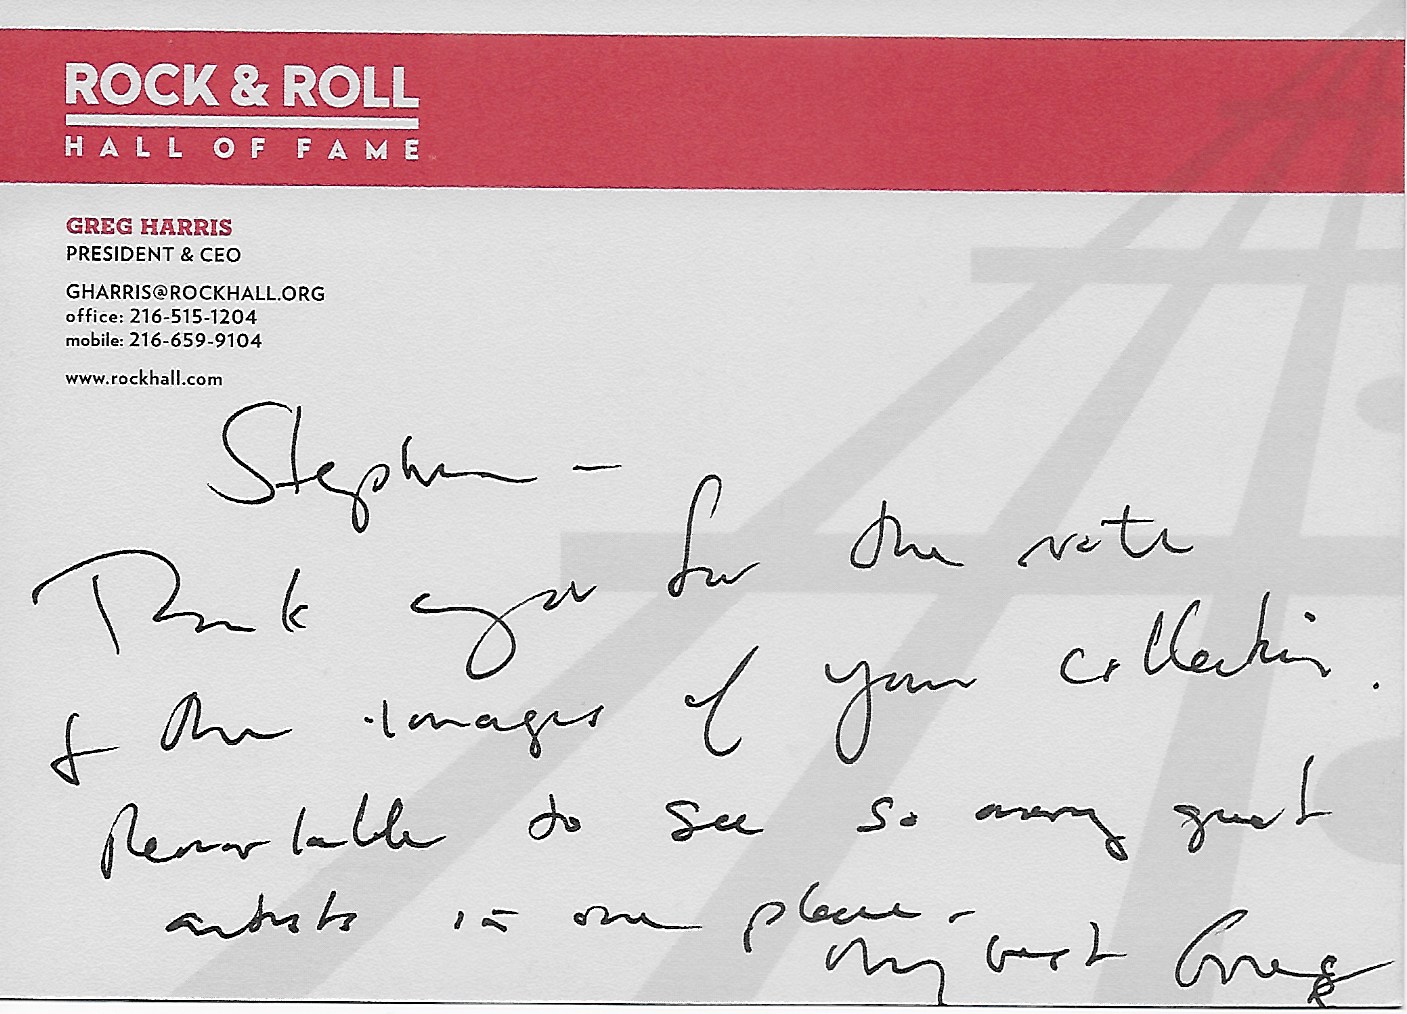 ROCK & ROLL
HALL OF FAME
GREG HARRIS
PRESIDENT & CEO
GHARRIS@ROCKHALL.ORG
office: 216-515-1204
mobile: 216-659-9104
www.rockhall.com
Stephen –
Thank you for the note
& the images of your collection.
Remarkable to see so many great
artists in one place.
My best Greg